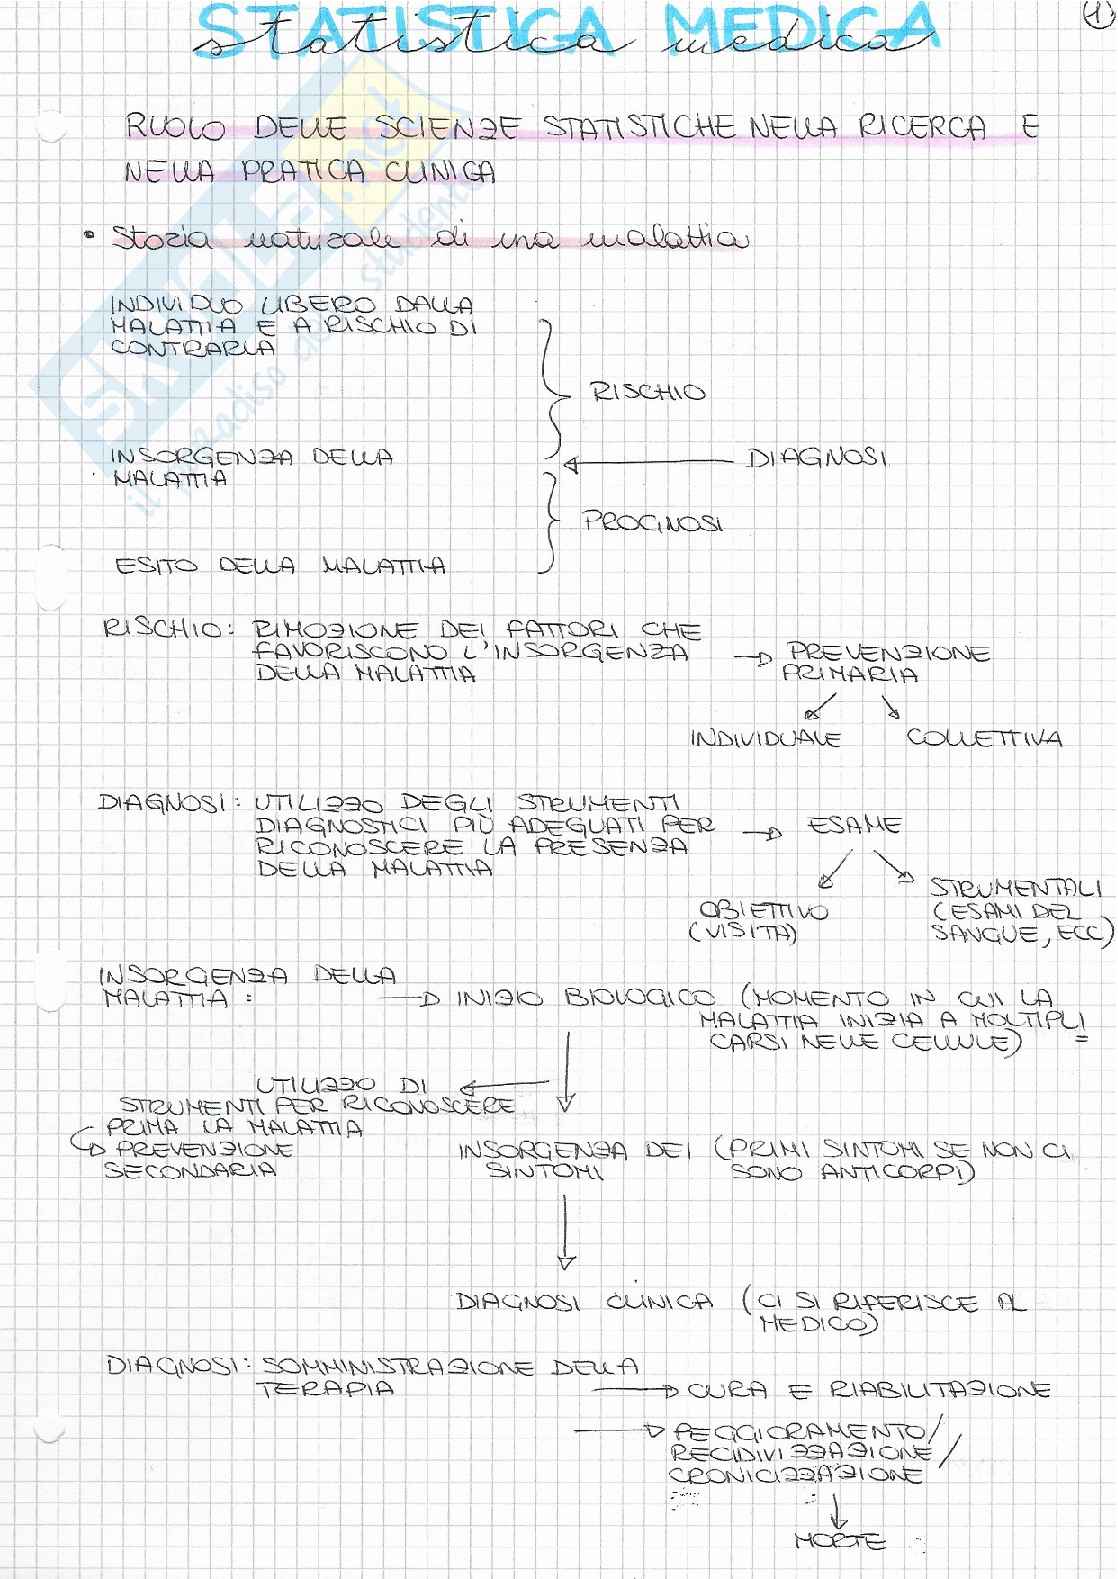 STATISTICA MEDICA
statistica medica
1
RUOLO DELLE SCIENZE STATISTICHE NELLA RICERCA E
NELLA PRATICA CLINICA
• Storia naturale di una malattia
INDIVIDUO LIBERO DALLA
MALATTIA E A RISCHIO DI
CONTRARLA
RISCHIO
INSORGENZA DELLA
MALATTIA
DIAGNOSI
PROGNOSI
ESITO DELLA MALATTIA
RISCHIO: RIMOZIONE DEI FATTORI CHE
FAVORISCONO L'INSORGENZA → PREVENZIONE
DELLA MALATTIA PRIMARIA
INDIVIDUALE COLLETTIVA
DIAGNOSI: UTILIZZO DEGLI STRUMENTI
DIAGNOSTICI PIÙ ADEGUATI PER → ESAME
RICONOSCERE LA PRESENZA
DELLA MALATTIA
OBIETTIVO
(VISITA)
STRUMENTALI
(ESAMI DEL
SANGUE, ECC)
INSORGENZA DELLA
MALATTIA: → INIZIO BIOLOGICO (MOMENTO IN CUI LA
MALATTIA INIZIA A MOLTIPLI
CARSI NELLE CELLULE) =
UTILIZZO DI
STRUMENTI PER RICONOSCERE
PRIMA LA MALATTIA
→ PREVENZIONE
SECONDARIA
INSORGENZA DEI (PRIMI SINTOMI SE NON CI
SINTOMI SONO ANTICORPI)
DIAGNOSI CLINICA (CI SI RIFERISCE AL
MEDICO)
DIAGNOSI: SOMMINISTRAZIONE DELLA
TERAPIA → CURA E RIABILITAZIONE
→ PEGGIORAMENTO/
RECIDIVIZZAZIONE/
CRONICIZZAZIONE
MORTE
SKUOLA.net
il paradiso dello studente